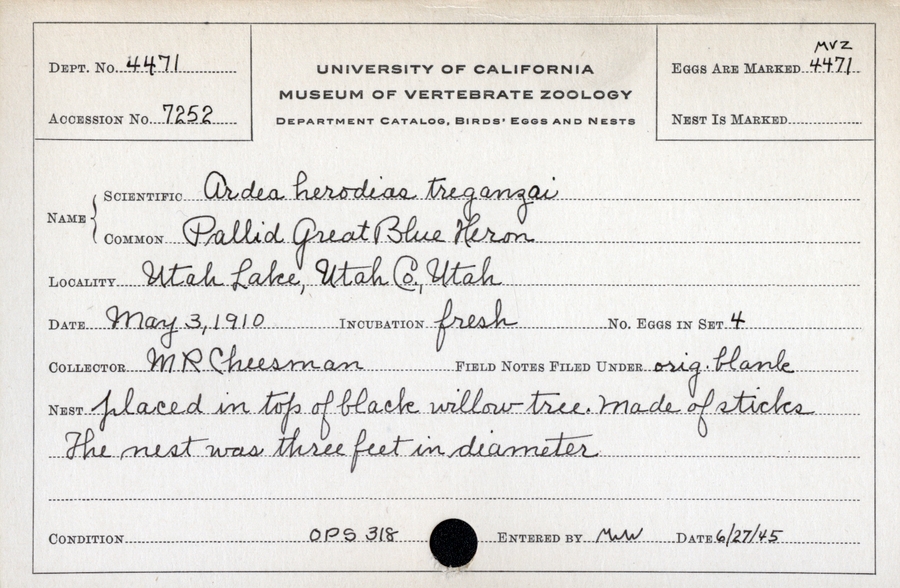 Dept. No. 4471
Accession No. 7252
UNIVERSITY OF CALIFORNIA
MUSEUM OF VERTEBRATE ZOOLOGY
Department Catalog, Birds' Eggs and Nests
MVZ
Eggs Are Marked 4471
Nest Is Marked
Name
Scientific Ardea herodias treganzai
Common Pallid Great Blue Heron
Locality Utah Lake, Utah Co., Utah
Date May 3, 1910 Incubation fresh No. Eggs in Set 4
Collector M R Cheesman Field Notes Filed Under orig. blank
Nest placed in top of black willow tree. Made of sticks
The nest was three feet in diameter
Condition OPS 318 Entered by MW Date 6/27/45